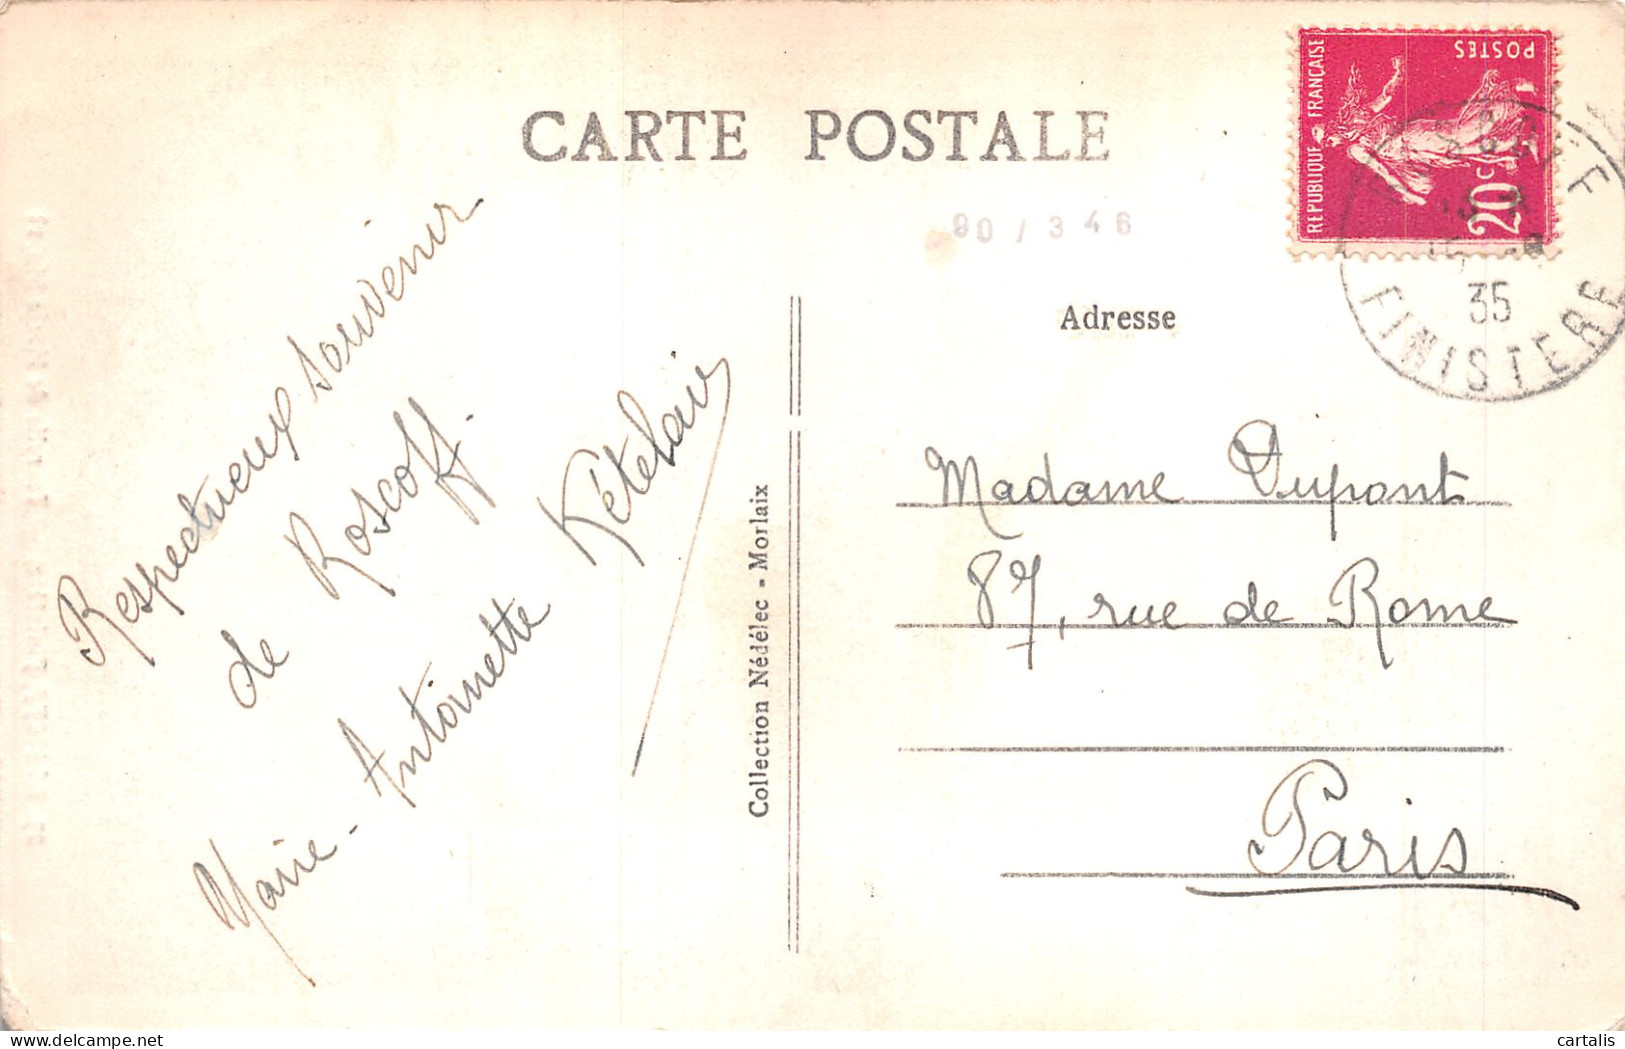 CARTE POSTALE
REPUBLIQUE FRANÇAISE
POSTES
20c
35
FINISTERE
90 / 346
Adresse
Respectueux souvenir
de Roscoff.
Marie-Antoinette Kételair
Collection Nédélec - Morlaix
Madame Dupont
87, rue de Rome
Paris
cartalis